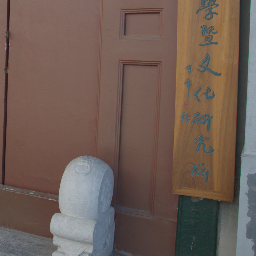 學暨文化研究所